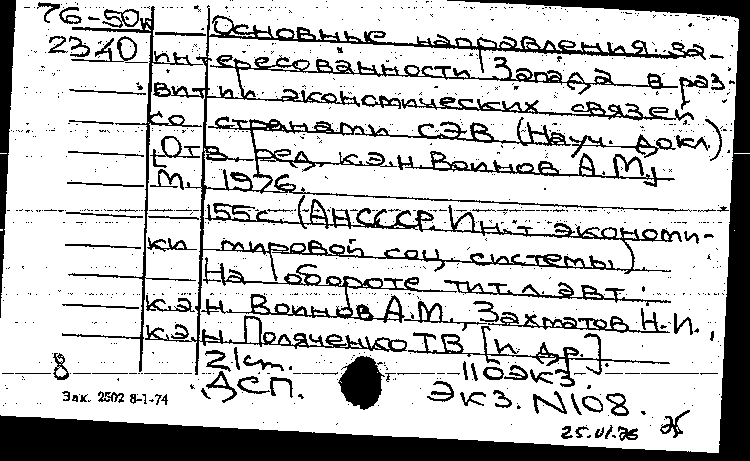 76-50к Основные направления за-
2340 интересованности Запада в раз-
витии экономических связей
со странами СЭВ. (Науч. докл.)
[Отв. ред. к.э.н. Воинов А.М.]
М., 1976.
155с. (АН СССР. Ин-т экономи-
ки мировой соц. системы).
На обороте тит. л. авт.:
к.э.н. Воинов А.М., Захматов Н.И.,
к.э.н. Поляченко Т.В. [и др.].
8 21см. 110экз.
ДСП. Экз. N108.
Зак. 2502 8-1-74
25.VI.76